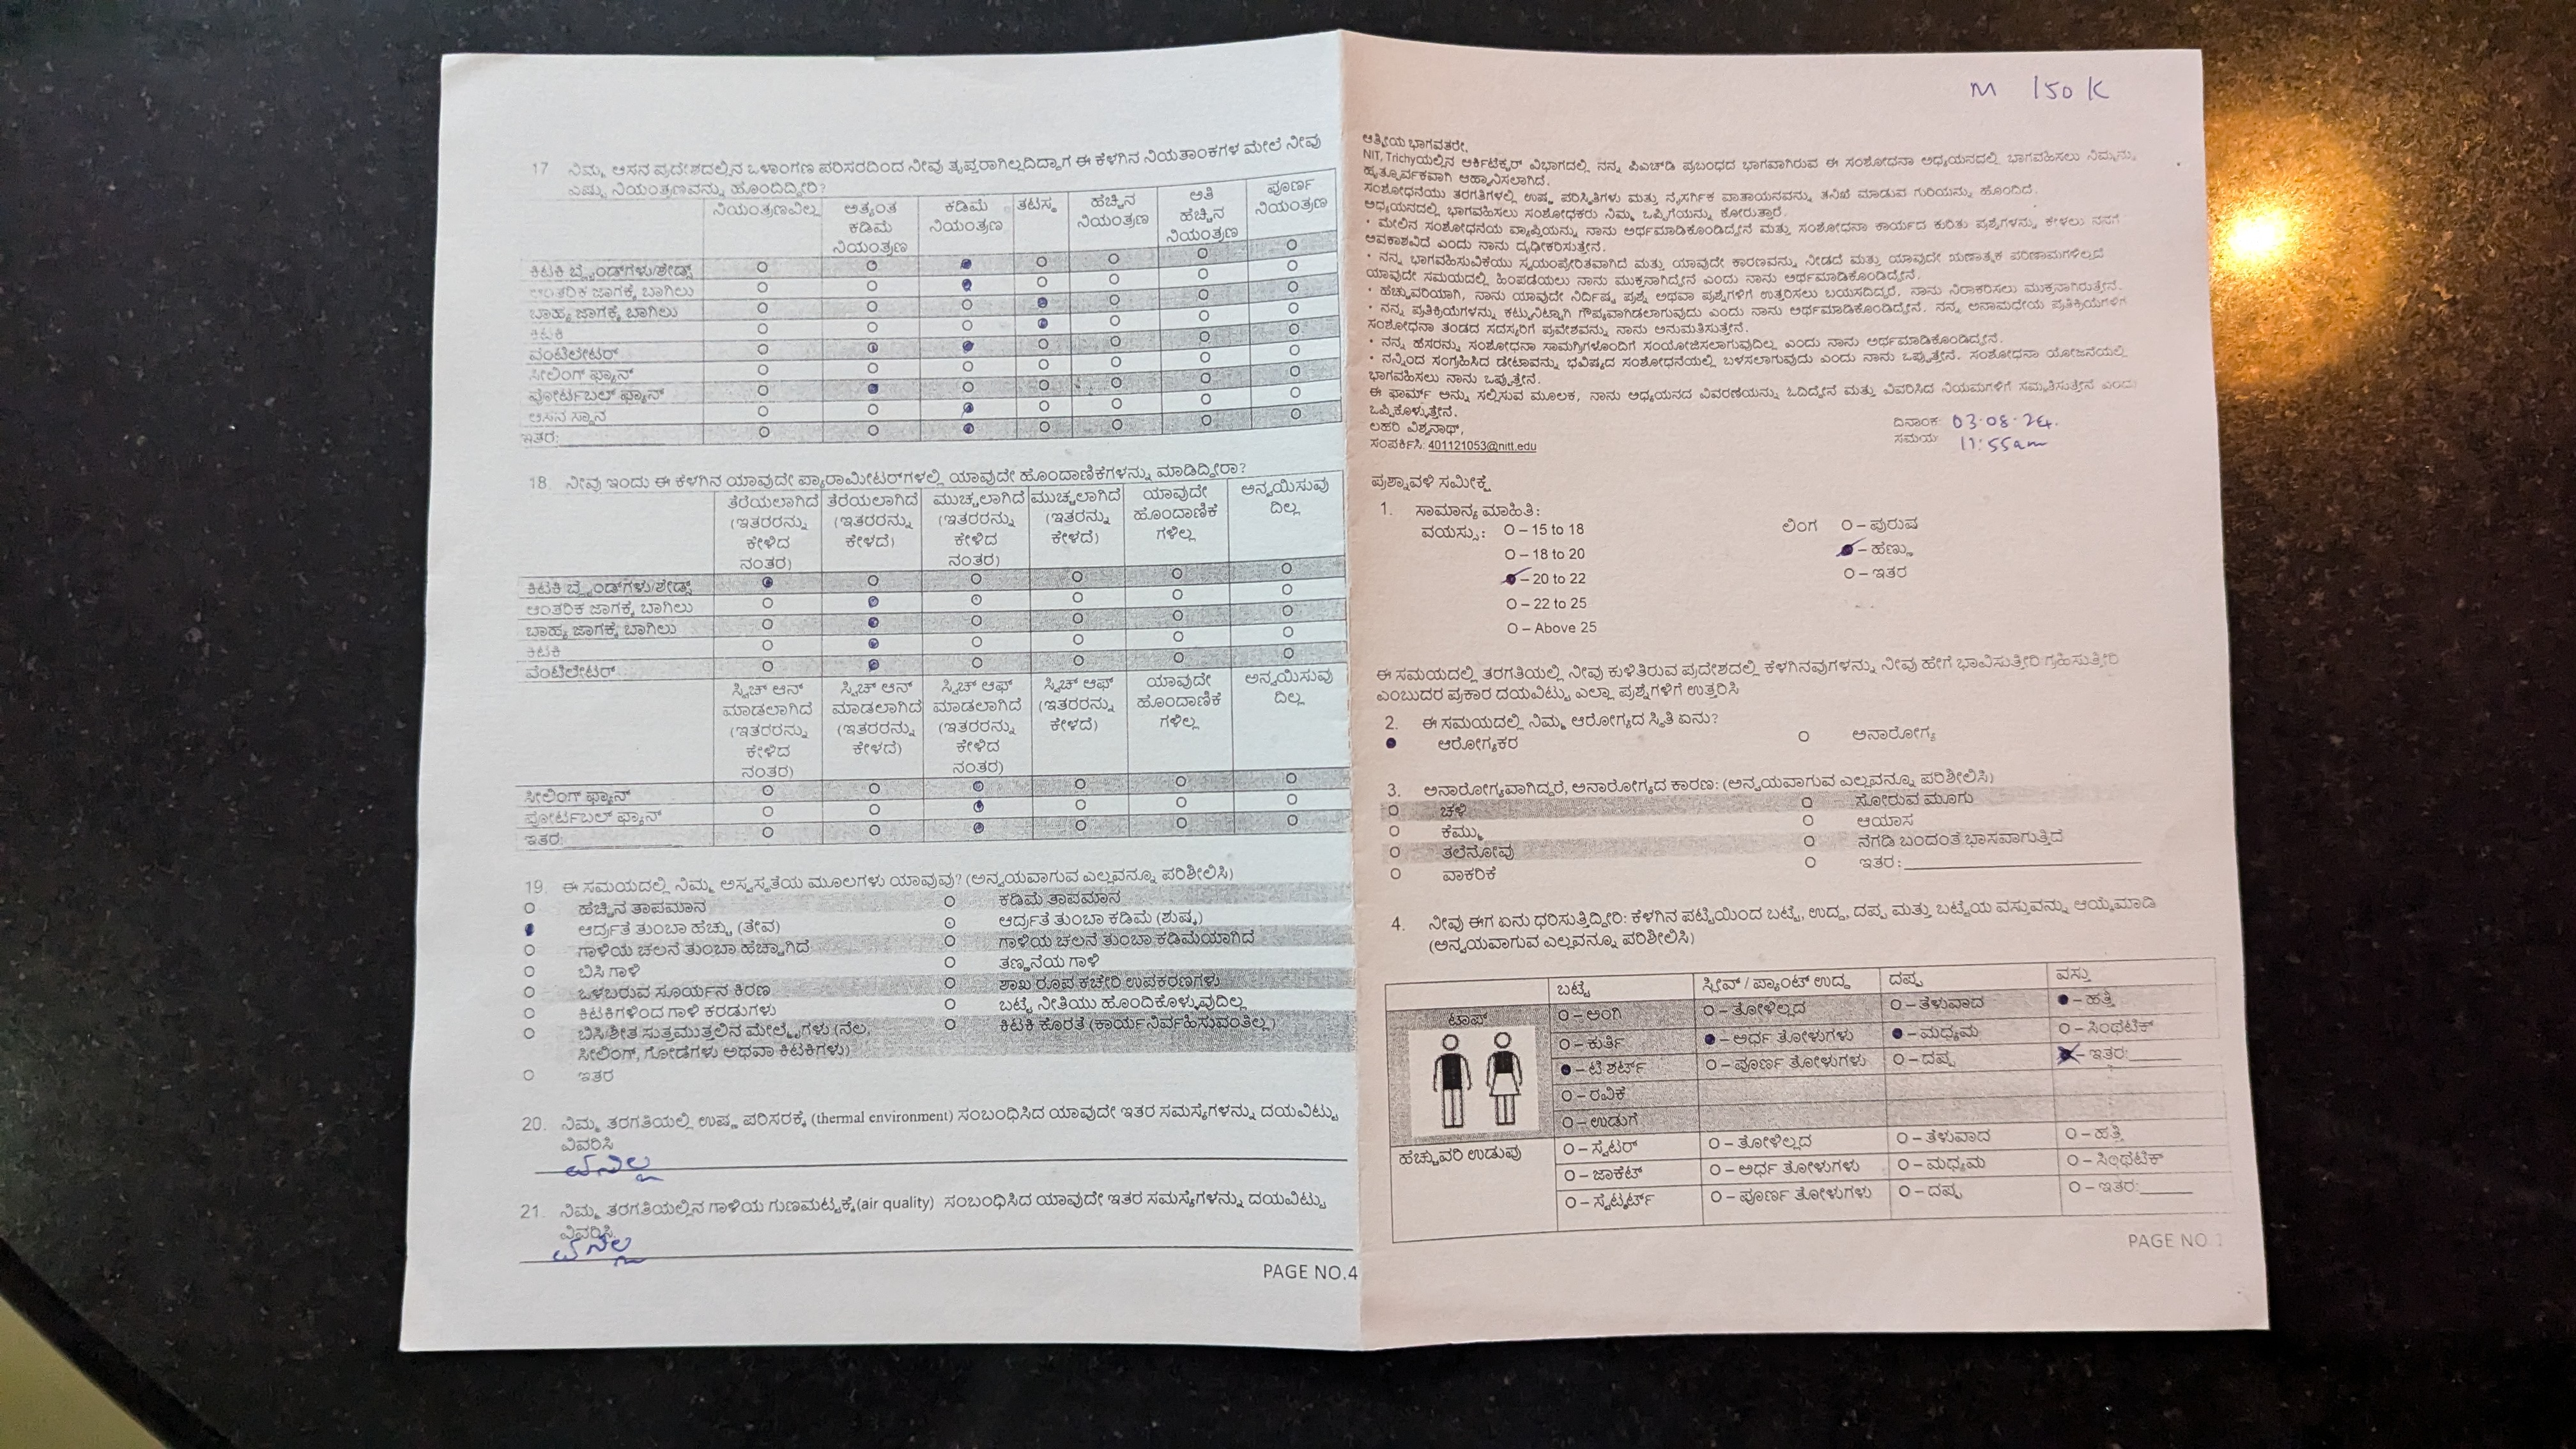 17 ನಿಮ್ಮ ಆಸನ ಪ್ರದೇಶದಲ್ಲಿನ ಒಳಾಂಗಣ ಪರಿಸರದಿಂದ ನೀವು ತೃಪ್ತರಾಗಿಲ್ಲದಿದ್ದಾಗ ಈ ಕೆಳಗಿನ ನಿಯತಾಂಕಗಳ ಮೇಲೆ ನೀವು
ಎಷ್ಟು ನಿಯಂತ್ರಣವನ್ನು ಹೊಂದಿದ್ದೀರಿ?
ನಿಯಂತ್ರಣವಿಲ್ಲ ಅತ್ಯಂತ ಕಡಿಮೆ ನಿಯಂತ್ರಣ ಕಡಿಮೆ ನಿಯಂತ್ರಣ ತಟಸ್ಥ ಹೆಚ್ಚಿನ ನಿಯಂತ್ರಣ ಅತಿ ಹೆಚ್ಚಿನ ನಿಯಂತ್ರಣ ಪೂರ್ಣ ನಿಯಂತ್ರಣ
ಕಿಟಕಿ ಬ್ಲೈಂಡ್‌ಗಳು/ಶೇಡ್ಸ್
ಆಂತರಿಕ ಜಾಗಕ್ಕೆ ಬಾಗಿಲು
ಬಾಹ್ಯ ಜಾಗಕ್ಕೆ ಬಾಗಿಲು
ಕಿಟಕಿ
ವೆಂಟಿಲೇಟರ್
ಸೀಲಿಂಗ್ ಫ್ಯಾನ್
ಪೋರ್ಟಬಲ್ ಫ್ಯಾನ್
ಆಸನ ಸ್ಥಾನ
ಇತರ:
18. ನೀವು ಇಂದು ಈ ಕೆಳಗಿನ ಯಾವುದೇ ಪ್ಯಾರಾಮೀಟರ್‌ಗಳಲ್ಲಿ ಯಾವುದೇ ಹೊಂದಾಣಿಕೆಗಳನ್ನು ಮಾಡಿದ್ದೀರಾ?
ತೆರೆಯಲಾಗಿದೆ (ಇತರರನ್ನು ಕೇಳಿದ ನಂತರ) ತೆರೆಯಲಾಗಿದೆ (ಇತರರನ್ನು ಕೇಳದೆ) ಮುಚ್ಚಲಾಗಿದೆ (ಇತರರನ್ನು ಕೇಳಿದ ನಂತರ) ಮುಚ್ಚಲಾಗಿದೆ (ಇತರನ್ನು ಕೇಳದೆ) ಯಾವುದೇ ಹೊಂದಾಣಿಕೆ ಗಳಿಲ್ಲ ಅನ್ವಯಿಸುವು ದಿಲ್ಲ
ಕಿಟಕಿ ಬ್ಲೈಂಡ್‌ಗಳು/ಶೇಡ್ಸ್
ಆಂತರಿಕ ಜಾಗಕ್ಕೆ ಬಾಗಿಲು
ಬಾಹ್ಯ ಜಾಗಕ್ಕೆ ಬಾಗಿಲು
ಕಿಟಕಿ
ವೆಂಟಿಲೇಟರ್
ಸ್ವಿಚ್ ಆನ್ ಮಾಡಲಾಗಿದೆ (ಇತರರನ್ನು ಕೇಳಿದ ನಂತರ) ಸ್ವಿಚ್ ಆನ್ ಮಾಡಲಾಗಿದೆ (ಇತರರನ್ನು ಕೇಳದೆ) ಸ್ವಿಚ್ ಆಫ್ ಮಾಡಲಾಗಿದೆ (ಇತರರನ್ನು ಕೇಳಿದ ನಂತರ) ಸ್ವಿಚ್ ಆಫ್ (ಇತರರನ್ನು ಕೇಳದೆ) ಯಾವುದೇ ಹೊಂದಾಣಿಕೆ ಗಳಿಲ್ಲ ಅನ್ವಯಿಸುವು ದಿಲ್ಲ
ಸೀಲಿಂಗ್ ಫ್ಯಾನ್
ಪೋರ್ಟಬಲ್ ಫ್ಯಾನ್
ಇತರ:
19. ಈ ಸಮಯದಲ್ಲಿ ನಿಮ್ಮ ಅಸ್ವಸ್ಥತೆಯ ಮೂಲಗಳು ಯಾವುವು? (ಅನ್ವಯವಾಗುವ ಎಲ್ಲವನ್ನೂ ಪರಿಶೀಲಿಸಿ)
ಹೆಚ್ಚಿನ ತಾಪಮಾನ ಕಡಿಮೆ ತಾಪಮಾನ
ಆರ್ದ್ರತೆ ತುಂಬಾ ಹೆಚ್ಚು (ತೇವ) ಆರ್ದ್ರತೆ ತುಂಬಾ ಕಡಿಮೆ (ಶುಷ್ಕ)
ಗಾಳಿಯ ಚಲನೆ ತುಂಬಾ ಹೆಚ್ಚಾಗಿದೆ ಗಾಳಿಯ ಚಲನೆ ತುಂಬಾ ಕಡಿಮೆಯಾಗಿದೆ
ಬಿಸಿ ಗಾಳಿ ತಣ್ಣನೆಯ ಗಾಳಿ
ಒಳಬರುವ ಸೂರ್ಯನ ಕಿರಣ ಶಾಖ ರೂಪ ಕಚೇರಿ ಉಪಕರಣಗಳು
ಕಿಟಕಿಗಳಿಂದ ಗಾಳಿ ಕರಡುಗಳು ಬಟ್ಟೆ ನೀತಿಯು ಹೊಂದಿಕೊಳ್ಳುವುದಿಲ್ಲ
ಬಿಸಿ/ಶೀತ ಸುತ್ತಮುತ್ತಲಿನ ಮೇಲ್ಮೈಗಳು (ನೆಲ, ಕಿಟಕಿ ಕೊರತೆ (ಕಾರ್ಯನಿರ್ವಹಿಸುವಂತಿಲ್ಲ)
ಸೀಲಿಂಗ್, ಗೋಡೆಗಳು ಅಥವಾ ಕಿಟಕಿಗಳು)
ಇತರ
20. ನಿಮ್ಮ ತರಗತಿಯಲ್ಲಿ ಉಷ್ಣ ಪರಿಸರಕ್ಕೆ (thermal environment) ಸಂಬಂಧಿಸಿದ ಯಾವುದೇ ಇತರ ಸಮಸ್ಯೆಗಳನ್ನು ದಯವಿಟ್ಟು
ವಿವರಿಸಿ
ಏನಿಲ್ಲ
21. ನಿಮ್ಮ ತರಗತಿಯಲ್ಲಿನ ಗಾಳಿಯ ಗುಣಮಟ್ಟಕ್ಕೆ(air quality) ಸಂಬಂಧಿಸಿದ ಯಾವುದೇ ಇತರ ಸಮಸ್ಯೆಗಳನ್ನು ದಯವಿಟ್ಟು
ವಿವರಿಸಿ
ಏನಿಲ್ಲ
PAGE NO.4
M 150 K
ಆತ್ಮೀಯ ಭಾಗವತರೇ,
NIT, Trichyಯಲ್ಲಿನ ಆರ್ಕಿಟೆಕ್ಚರ್ ವಿಭಾಗದಲ್ಲಿ ನನ್ನ ಪಿಎಚ್‌ಡಿ ಪ್ರಬಂಧದ ಭಾಗವಾಗಿರುವ ಈ ಸಂಶೋಧನಾ ಅಧ್ಯಯನದಲ್ಲಿ ಭಾಗವಹಿಸಲು ನಿಮ್ಮನ್ನು
ಹೃತ್ಪೂರ್ವಕವಾಗಿ ಆಹ್ವಾನಿಸಲಾಗಿದೆ.
ಸಂಶೋಧನೆಯು ತರಗತಿಗಳಲ್ಲಿ ಉಷ್ಣ ಪರಿಸ್ಥಿತಿಗಳು ಮತ್ತು ನೈಸರ್ಗಿಕ ವಾತಾಯನವನ್ನು ತನಿಖೆ ಮಾಡುವ ಗುರಿಯನ್ನು ಹೊಂದಿದೆ.
ಅಧ್ಯಯನದಲ್ಲಿ ಭಾಗವಹಿಸಲು ಸಂಶೋಧಕರು ನಿಮ್ಮ ಒಪ್ಪಿಗೆಯನ್ನು ಕೋರುತ್ತಾರೆ.
• ಮೇಲಿನ ಸಂಶೋಧನೆಯ ವ್ಯಾಪ್ತಿಯನ್ನು ನಾನು ಅರ್ಥಮಾಡಿಕೊಂಡಿದ್ದೇನೆ ಮತ್ತು ಸಂಶೋಧನಾ ಕಾರ್ಯದ ಕುರಿತು ಪ್ರಶ್ನೆಗಳನ್ನು ಕೇಳಲು ನನಗೆ
ಅವಕಾಶವಿದೆ ಎಂದು ನಾನು ದೃಢೀಕರಿಸುತ್ತೇನೆ.
• ನನ್ನ ಭಾಗವಹಿಸುವಿಕೆಯು ಸ್ವಯಂಪ್ರೇರಿತವಾಗಿದೆ ಮತ್ತು ಯಾವುದೇ ಕಾರಣವನ್ನು ನೀಡದೆ ಮತ್ತು ಯಾವುದೇ ಋಣಾತ್ಮಕ ಪರಿಣಾಮಗಳಿಲ್ಲದೆ
ಯಾವುದೇ ಸಮಯದಲ್ಲಿ ಹಿಂಪಡೆಯಲು ನಾನು ಮುಕ್ತನಾಗಿದ್ದೇನೆ ಎಂದು ನಾನು ಅರ್ಥಮಾಡಿಕೊಂಡಿದ್ದೇನೆ.
• ಹೆಚ್ಚುವರಿಯಾಗಿ, ನಾನು ಯಾವುದೇ ನಿರ್ದಿಷ್ಟ ಪ್ರಶ್ನೆ ಅಥವಾ ಪ್ರಶ್ನೆಗಳಿಗೆ ಉತ್ತರಿಸಲು ಬಯಸದಿದ್ದರೆ, ನಾನು ನಿರಾಕರಿಸಲು ಮುಕ್ತನಾಗಿರುತ್ತೇನೆ.
• ನನ್ನ ಪ್ರತಿಕ್ರಿಯೆಗಳನ್ನು ಕಟ್ಟುನಿಟ್ಟಾಗಿ ಗೌಪ್ಯವಾಗಿಡಲಾಗುವುದು ಎಂದು ನಾನು ಅರ್ಥಮಾಡಿಕೊಂಡಿದ್ದೇನೆ. ನನ್ನ ಅನಾಮಧೇಯ ಪ್ರತಿಕ್ರಿಯೆಗಳಿಗೆ
ಸಂಶೋಧನಾ ತಂಡದ ಸದಸ್ಯರಿಗೆ ಪ್ರವೇಶವನ್ನು ನಾನು ಅನುಮತಿಸುತ್ತೇನೆ.
• ನನ್ನ ಹೆಸರನ್ನು ಸಂಶೋಧನಾ ಸಾಮಗ್ರಿಗಳೊಂದಿಗೆ ಸಂಯೋಜಿಸಲಾಗುವುದಿಲ್ಲ ಎಂದು ನಾನು ಅರ್ಥಮಾಡಿಕೊಂಡಿದ್ದೇನೆ.
• ನನ್ನಿಂದ ಸಂಗ್ರಹಿಸಿದ ಡೇಟಾವನ್ನು ಭವಿಷ್ಯದ ಸಂಶೋಧನೆಯಲ್ಲಿ ಬಳಸಲಾಗುವುದು ಎಂದು ನಾನು ಒಪ್ಪುತ್ತೇನೆ. ಸಂಶೋಧನಾ ಯೋಜನೆಯಲ್ಲಿ
ಭಾಗವಹಿಸಲು ನಾನು ಒಪ್ಪುತ್ತೇನೆ.
ಈ ಫಾರ್ಮ್ ಅನ್ನು ಸಲ್ಲಿಸುವ ಮೂಲಕ, ನಾನು ಅಧ್ಯಯನದ ವಿವರಣೆಯನ್ನು ಓದಿದ್ದೇನೆ ಮತ್ತು ವಿವರಿಸಿದ ನಿಯಮಗಳಿಗೆ ಸಮ್ಮತಿಸುತ್ತೇನೆ ಎಂದು
ಒಪ್ಪಿಕೊಳ್ಳುತ್ತೇನೆ.
ಲಹರಿ ವಿಶ್ವನಾಥ್,
ಸಂಪರ್ಕಿಸಿ: 401121053@nitt.edu
ದಿನಾಂಕ: 03.08.24.
ಸಮಯ: 11:55am
ಪ್ರಶ್ನಾವಳಿ ಸಮೀಕ್ಷೆ
1. ಸಾಮಾನ್ಯ ಮಾಹಿತಿ:
ವಯಸ್ಸು: O – 15 to 18 ಲಿಂಗ O – ಪುರುಷ
O – 18 to 20 – ಹೆಣ್ಣು
– 20 to 22 O – ಇತರ
O – 22 to 25
O – Above 25
ಈ ಸಮಯದಲ್ಲಿ ತರಗತಿಯಲ್ಲಿ ನೀವು ಕುಳಿತಿರುವ ಪ್ರದೇಶದಲ್ಲಿ ಕೆಳಗಿನವುಗಳನ್ನು ನೀವು ಹೇಗೆ ಭಾವಿಸುತ್ತೀರಿ ಗ್ರಹಿಸುತ್ತೀರಿ
ಎಂಬುದರ ಪ್ರಕಾರ ದಯವಿಟ್ಟು ಎಲ್ಲಾ ಪ್ರಶ್ನೆಗಳಿಗೆ ಉತ್ತರಿಸಿ
2. ಈ ಸಮಯದಲ್ಲಿ ನಿಮ್ಮ ಆರೋಗ್ಯದ ಸ್ಥಿತಿ ಏನು?
ಆರೋಗ್ಯಕರ ಅನಾರೋಗ್ಯ
3. ಅನಾರೋಗ್ಯವಾಗಿದ್ದರೆ, ಅನಾರೋಗ್ಯದ ಕಾರಣ: (ಅನ್ವಯವಾಗುವ ಎಲ್ಲವನ್ನೂ ಪರಿಶೀಲಿಸಿ)
ಚಳಿ ಸೋರುವ ಮೂಗು
ಕೆಮ್ಮು ಆಯಾಸ
ತಲೆನೋವು ನೆಗಡಿ ಬಂದಂತೆ ಭಾಸವಾಗುತ್ತಿದೆ
ವಾಕರಿಕೆ ಇತರ:
4. ನೀವು ಈಗ ಏನು ಧರಿಸುತ್ತಿದ್ದೀರಿ: ಕೆಳಗಿನ ಪಟ್ಟಿಯಿಂದ ಬಟ್ಟೆ, ಉದ್ದ, ದಪ್ಪ ಮತ್ತು ಬಟ್ಟೆಯ ವಸ್ತುವನ್ನು ಆಯ್ಕೆಮಾಡಿ
(ಅನ್ವಯವಾಗುವ ಎಲ್ಲವನ್ನೂ ಪರಿಶೀಲಿಸಿ)
ಬಟ್ಟೆ ಸ್ಲೀವ್ / ಪ್ಯಾಂಟ್ ಉದ್ದ ದಪ್ಪ ವಸ್ತು
ಟಾಪ್ O – ಅಂಗಿ O – ತೋಳಿಲ್ಲದ O – ತೆಳುವಾದ – ಹತ್ತಿ
O – ಕುರ್ತಿ – ಅರ್ಧ ತೋಳುಗಳು – ಮಧ್ಯಮ O – ಸಿಂಥೆಟಿಕ್
– ಟಿ ಶರ್ಟ್ O – ಪೂರ್ಣ ತೋಳುಗಳು O – ದಪ್ಪ – ಇತರ:
O – ರವಿಕೆ
O – ಉಡುಗೆ
ಹೆಚ್ಚುವರಿ ಉಡುಪು O – ಸ್ವೆಟರ್ O – ತೋಳಿಲ್ಲದ O – ತೆಳುವಾದ O – ಹತ್ತಿ
O – ಜಾಕೆಟ್ O – ಅರ್ಧ ತೋಳುಗಳು O – ಮಧ್ಯಮ O – ಸಿಂಥೆಟಿಕ್
O – ಸ್ವೆಟ್ಶರ್ಟ್ O – ಪೂರ್ಣ ತೋಳುಗಳು O – ದಪ್ಪ O – ಇತರ:
PAGE NO 1